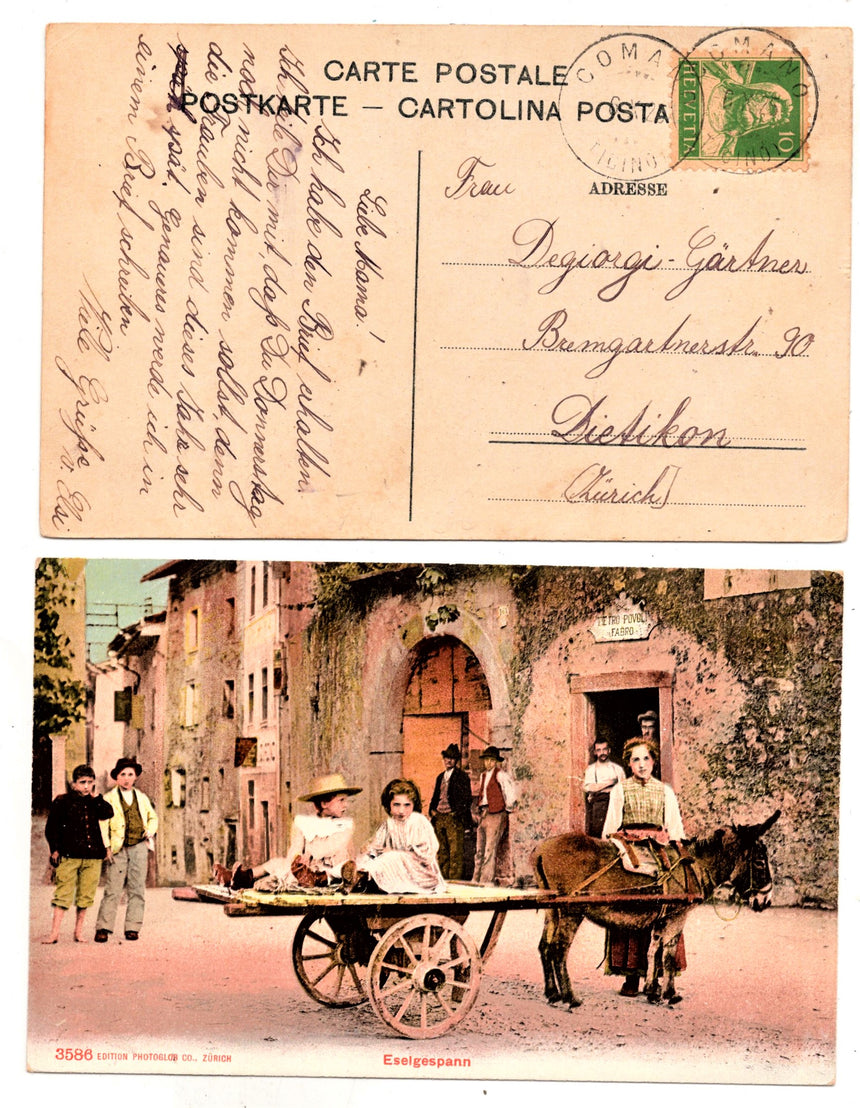 CARTE POSTALE
POSTKARTE — CARTOLINA POSTA
COMANO
(TICINO)
COMANO
(TICINO)
HELVETIA
10
ADRESSE
Frau
Degiorgi-Gärtner
Bremgartnerstr. 90
Dietikon
(Zürich)
Liebe Mama!
Ich habe den Brief erhalten.
Ich teile Dir mit, daß Du Donnerstag
noch nicht kommen sollst denn
die Trauben sind dieses Jahr sehr
spät. Genaueres werd ich in
einem Brief schreiben
Viele Grüße
v. Elsi
PIETRO POVOLI
FABRO
3586 EDITION PHOTOGLOB CO., ZÜRICH
Eselgespann